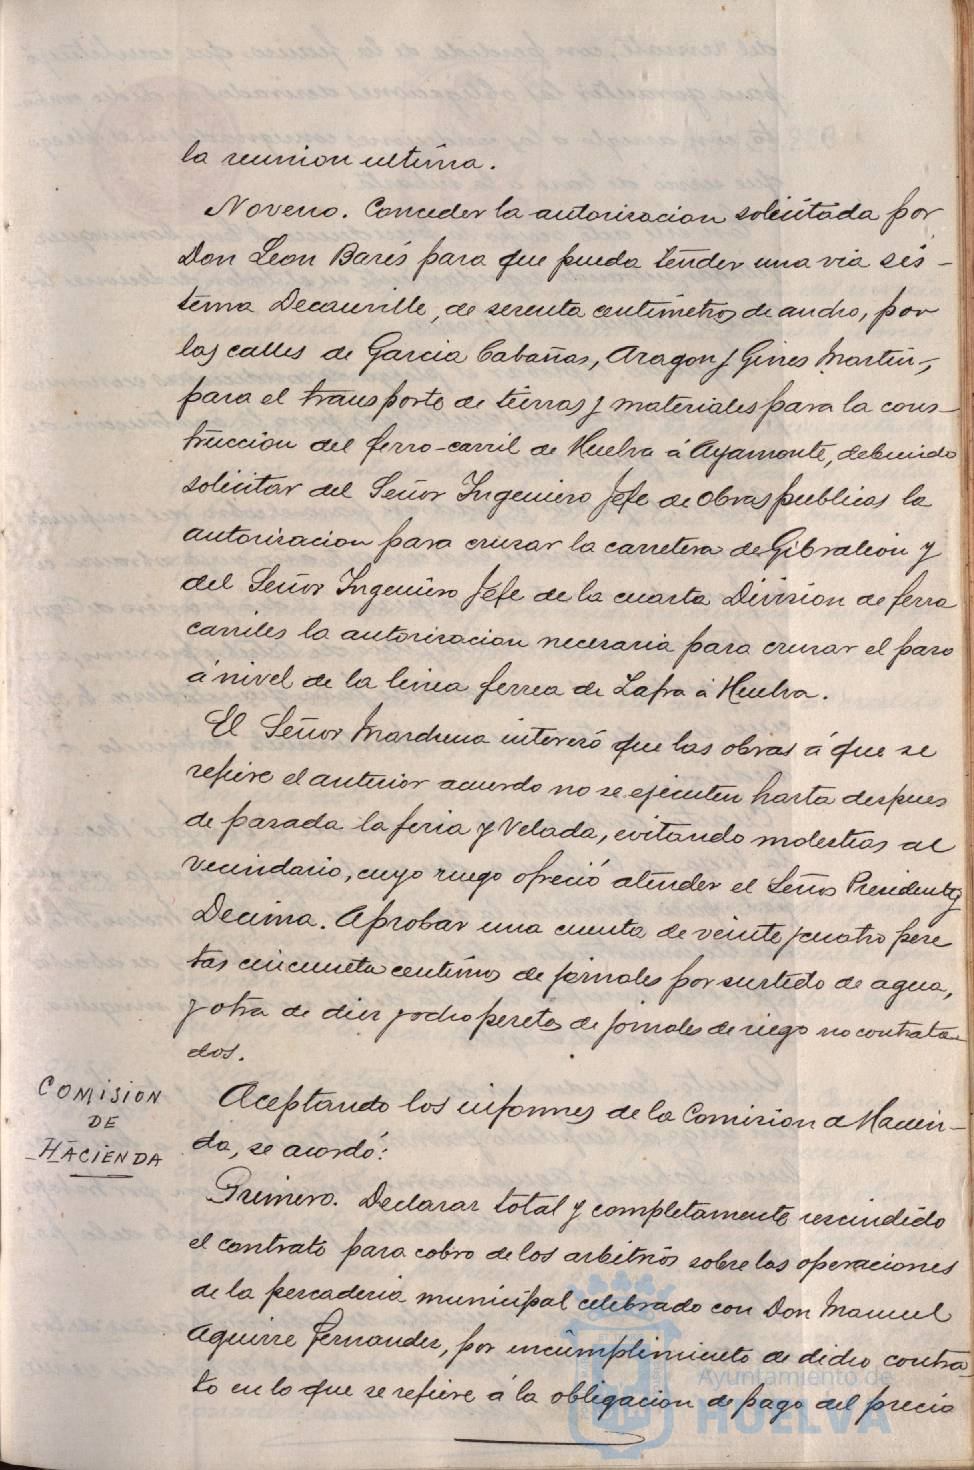 la reunion ultima.
Noveno. Conceder la autorizacion solicitada por
Don Leon Barés para que pueda tender una via sis-
tema Decauville, de sesenta centimetros de ancho, por
las calles de Garcia Cabañas, Aragon y Gines Martin,
para el transporte de tierras y materiales para la cons-
truccion del ferro-carril de Huelva á Ayamonte, debiendo
solicitar del Señor Ingeniero Jefe de Obras publicas la
autorizacion para cruzar la carretera de Gibraleon y
del Señor Ingeniero Jefe de la cuarta Division de ferro
carriles la autorizacion necesaria para cruzar el paso
á nivel de la linea ferrea de Zafra á Huelva.
El Señor Marchena interesó que las obras á que se
refiere el anterior acuerdo no se ejecuten hasta despues
de pasada la feria y Velada, evitando molestias al
vecindario, cuyo ruego ofreció atender el Señor Presidente
Decima. Aprobar una cuenta de veinte y cuatro pese
tas cincuenta centimos de jornales por surtido de agua,
y otra de diez y ocho pesetas de jornales de riego no contrata-
dos.
COMISION
DE
HACIENDA
Aceptando los informes de la Comision de Hacien-
da, se acordó:
Primero. Declarar total y completamente rescindido
el contrato para cobro de los arbitrios sobre las operaciones
de la pescaderia municipal celebrado con Don Manuel
Aguirre Fernandez, por incumplimiento de dicho contra-
to en lo que se refiere á la obligacion de pago del precio
Ayuntamiento de
HUELVA